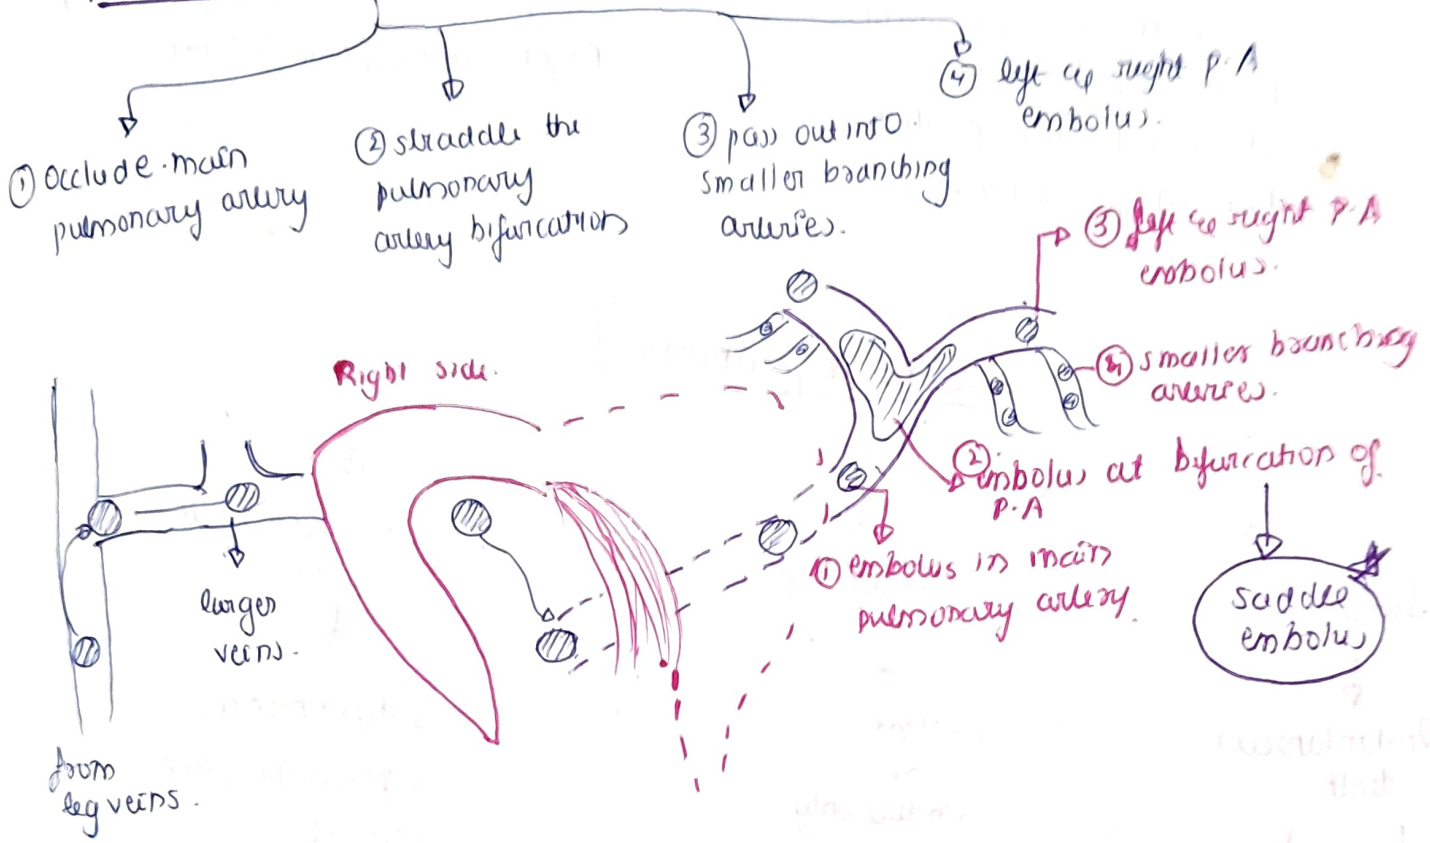 ① Occlude main
pulmonary artery
② straddle the
pulmonary
artery bifurcation
③ pass out into
smaller branching
arteries.
④ left or right P.A
embolus.
③ left or right P.A
embolus.
④ smaller branching
arteries.
Right side.
② embolus at bifurcation of
P.A
① embolus in main
pulmonary artery.
saddle
embolus
larger
veins.
from
leg veins.